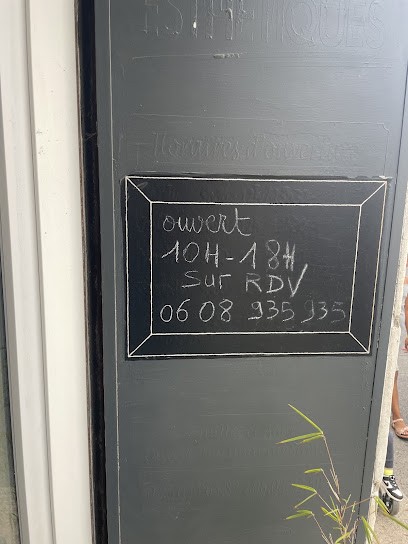 ESTHETIQUES
Horaires d'ouverture
ouvert
10H-18H
Sur RDV
06 08 935 935